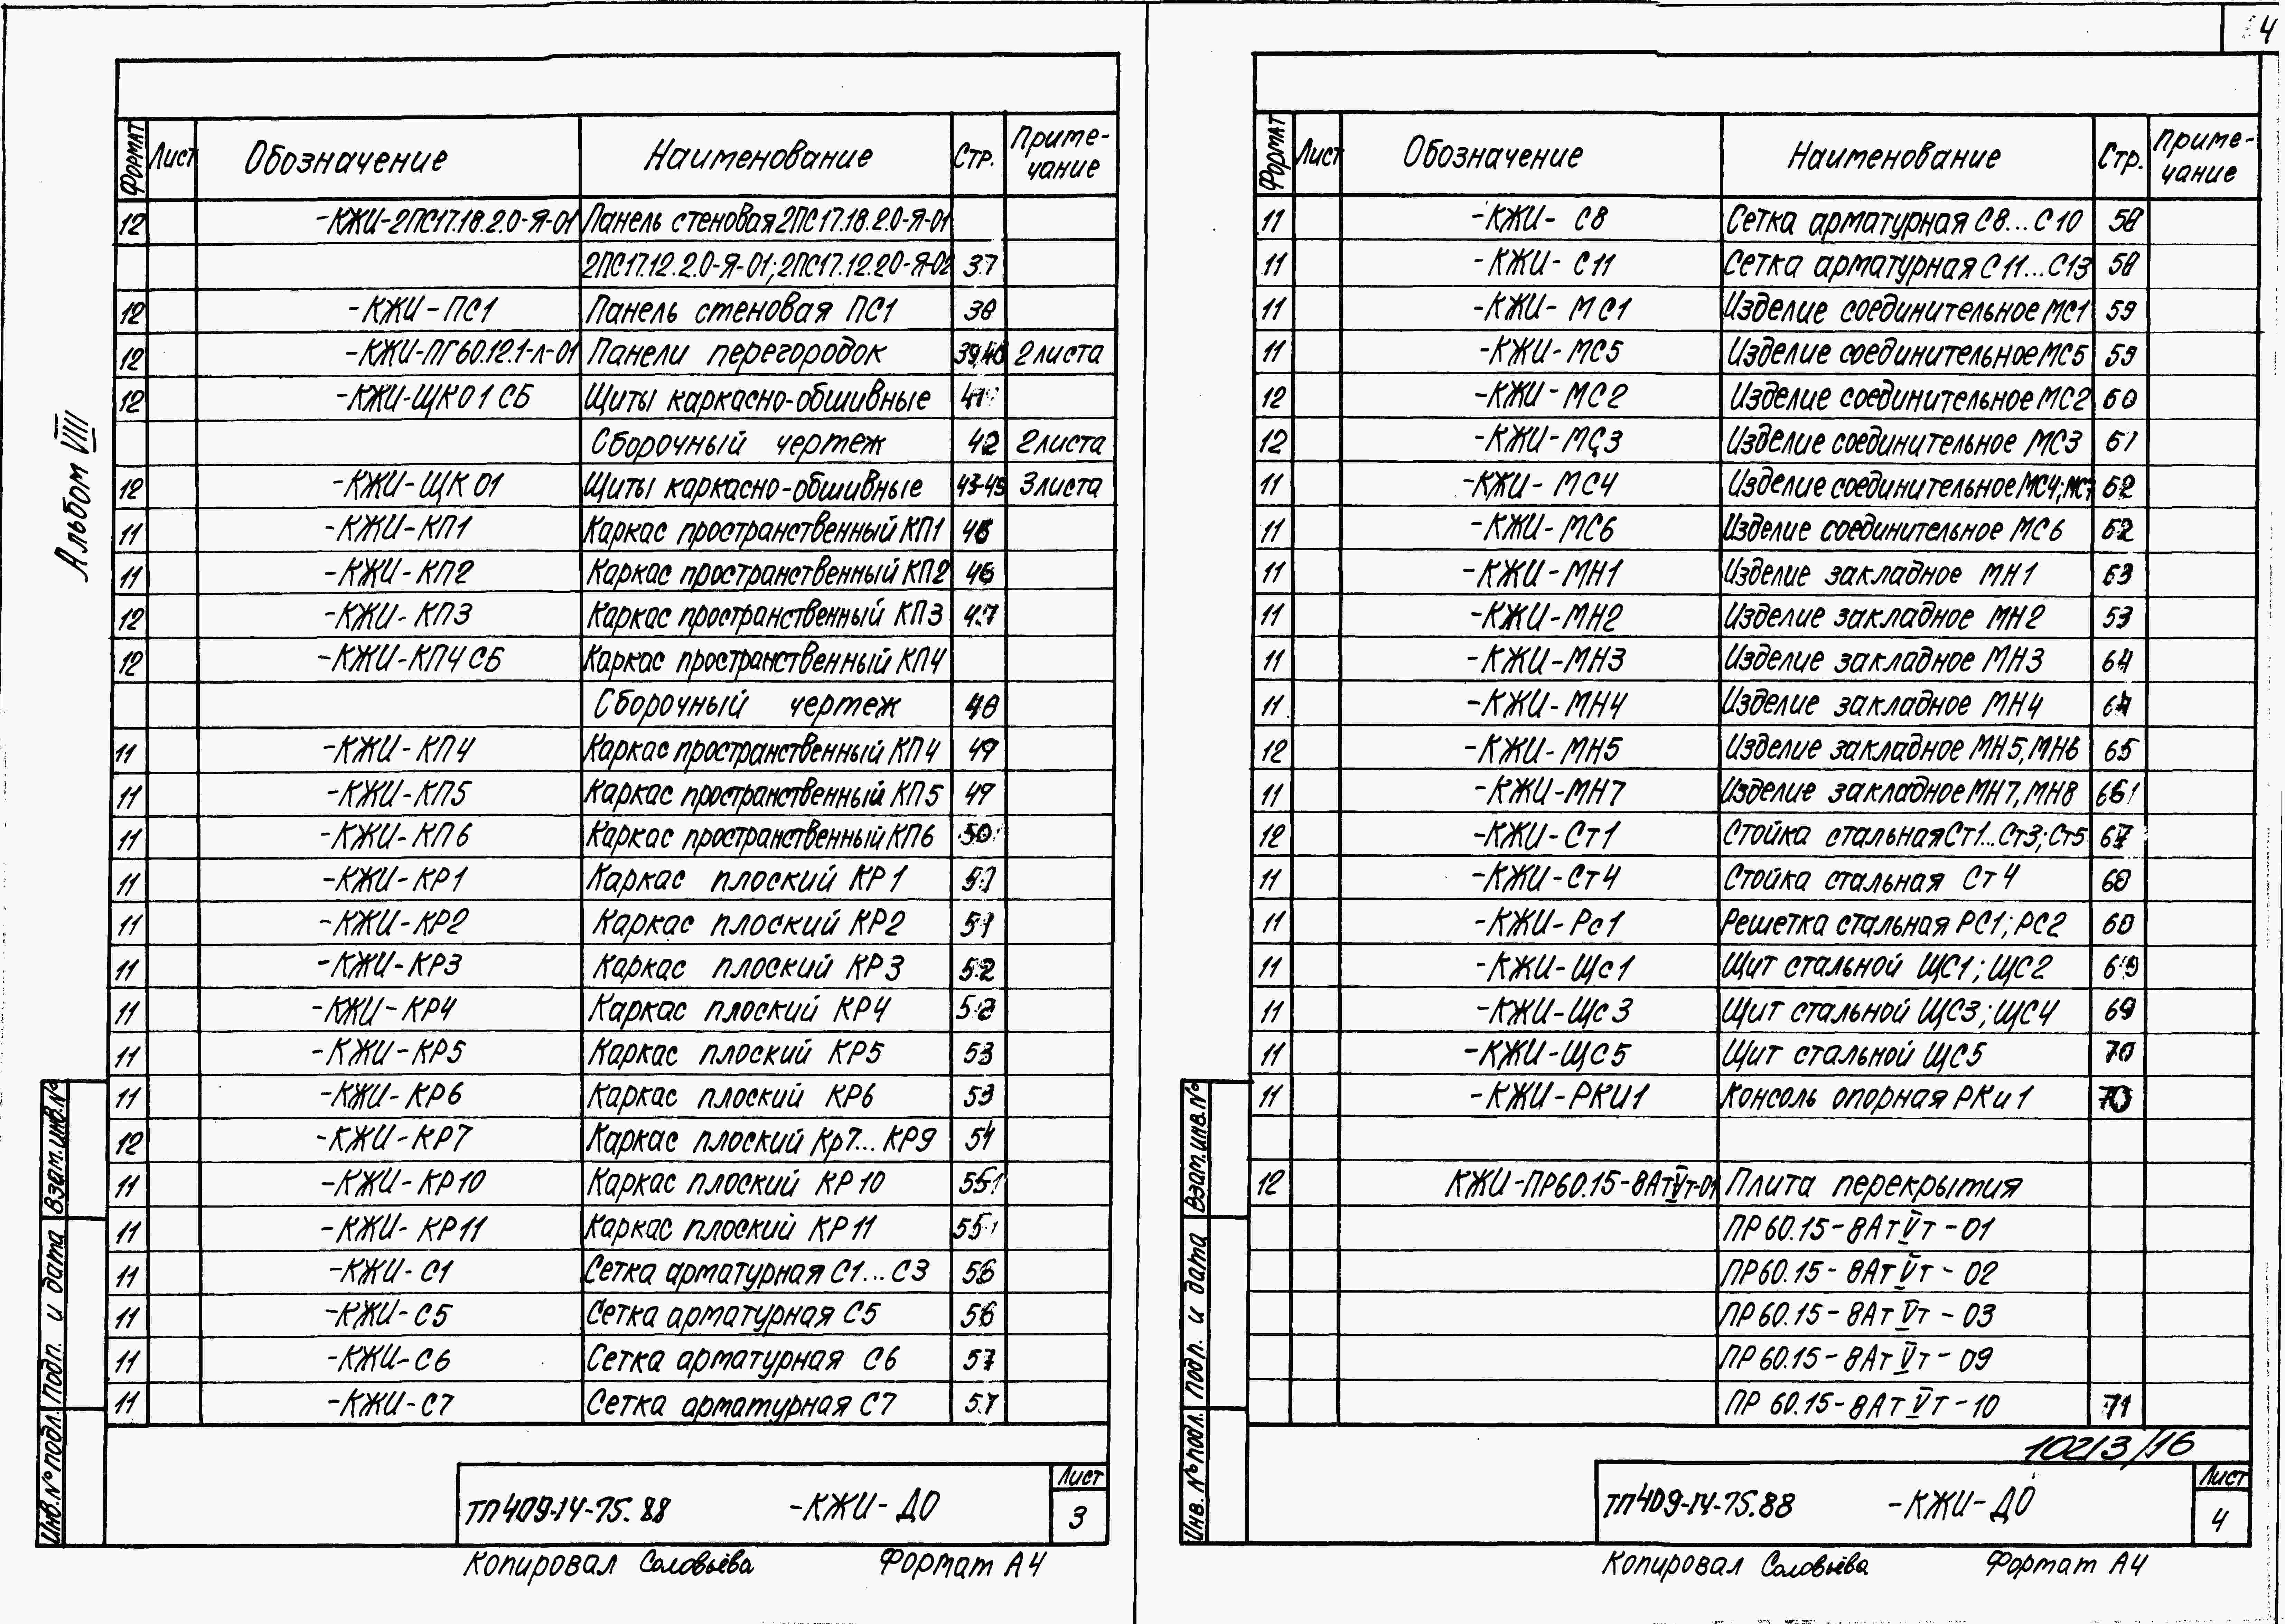 4
Альбом VIII
Формат Лист Обозначение Наименование Стр. Приме-
чание
12 -КЖИ-2ПС17.18.2.0-Я-01 Панель стеновая 2ПС17.18.2.0-Я-01
2ПС17.12.2.0-Я-01; 2ПС17.12.20-Я-02 37
12 -КЖИ-ПС1 Панель стеновая ПС1 38
12 -КЖИ-ПГ60.12.1-Л-01 Панели перегородок 39,40 2 листа
12 -КЖИ-ЩК01 СБ Щиты каркасно-обшивные 41
Сборочный чертеж 42 2 листа
12 -КЖИ-ЩК 01 Щиты каркасно-обшивные 43-45 3 листа
11 -КЖИ-КП1 Каркас пространственный КП1 46
11 -КЖИ-КП2 Каркас пространственный КП2 46
12 -КЖИ-КП3 Каркас пространственный КП3 47
12 -КЖИ-КП4 СБ Каркас пространственный КП4
Сборочный чертеж 48
11 -КЖИ-КП4 Каркас пространственный КП4 49
11 -КЖИ-КП5 Каркас пространственный КП5 49
11 -КЖИ-КП6 Каркас пространственный КП6 50
11 -КЖИ-КР1 Каркас плоский КР1 51
11 -КЖИ-КР2 Каркас плоский КР2 51
11 -КЖИ-КР3 Каркас плоский КР3 52
11 -КЖИ-КР4 Каркас плоский КР4 52
11 -КЖИ-КР5 Каркас плоский КР5 53
11 -КЖИ-КР6 Каркас плоский КР6 53
12 -КЖИ-КР7 Каркас плоский Кр7...КР9 54
11 -КЖИ-КР10 Каркас плоский КР10 55
11 -КЖИ-КР11 Каркас плоский КР11 55
11 -КЖИ-С1 Сетка арматурная С1...С3 56
11 -КЖИ-С5 Сетка арматурная С5 56
11 -КЖИ-С6 Сетка арматурная С6 57
11 -КЖИ-С7 Сетка арматурная С7 57
Инв.№ подл. Подп. и дата Взам.инв.№
ТП 409-14-75.88 -КЖИ-ДО Лист
3
Копировал Соловьёва Формат А4
Формат Лист Обозначение Наименование Стр. Приме-
чание
11 -КЖИ-С8 Сетка арматурная С8...С10 58
11 -КЖИ-С11 Сетка арматурная С11...С13 58
11 -КЖИ-МС1 Изделие соединительное МС1 59
11 -КЖИ-МС5 Изделие соединительное МС5 59
12 -КЖИ-МС2 Изделие соединительное МС2 60
12 -КЖИ-МС3 Изделие соединительное МС3 61
11 -КЖИ-МС4 Изделие соединительное МС4; МС7 62
11 -КЖИ-МС6 Изделие соединительное МС6 62
11 -КЖИ-МН1 Изделие закладное МН1 63
11 -КЖИ-МН2 Изделие закладное МН2 63
11 -КЖИ-МН3 Изделие закладное МН3 64
11 -КЖИ-МН4 Изделие закладное МН4 64
12 -КЖИ-МН5 Изделие закладное МН5, МН6 65
11 -КЖИ-МН7 Изделие закладное МН7, МН8 66
12 -КЖИ-Ст1 Стойка стальная Ст1...Ст3; Ст5 67
11 -КЖИ-Ст4 Стойка стальная Ст4 68
11 -КЖИ-Рс1 Решетка стальная РС1; РС2 68
11 -КЖИ-Щс1 Щит стальной ЩС1; ЩС2 69
11 -КЖИ-Щс3 Щит стальной ЩС3; ЩС4 69
11 -КЖИ-ЩС5 Щит стальной ЩС5 70
11 -КЖИ-РКИ1 Консоль опорная РКи1 70
12 КЖИ-ПР60.15-8АтVт-01 Плита перекрытия
ПР60.15-8АтVт-01
ПР60.15-8АтVт-02
ПР60.15-8АтVт-03
ПР60.15-8АтVт-09
ПР 60.15-8АтVт-10 71
10213/16
Инв.№ подл. Подп. и дата Взам.инв.№
ТП 409-14-75.88 -КЖИ-ДО Лист
4
Копировал Соловьёва Формат А4